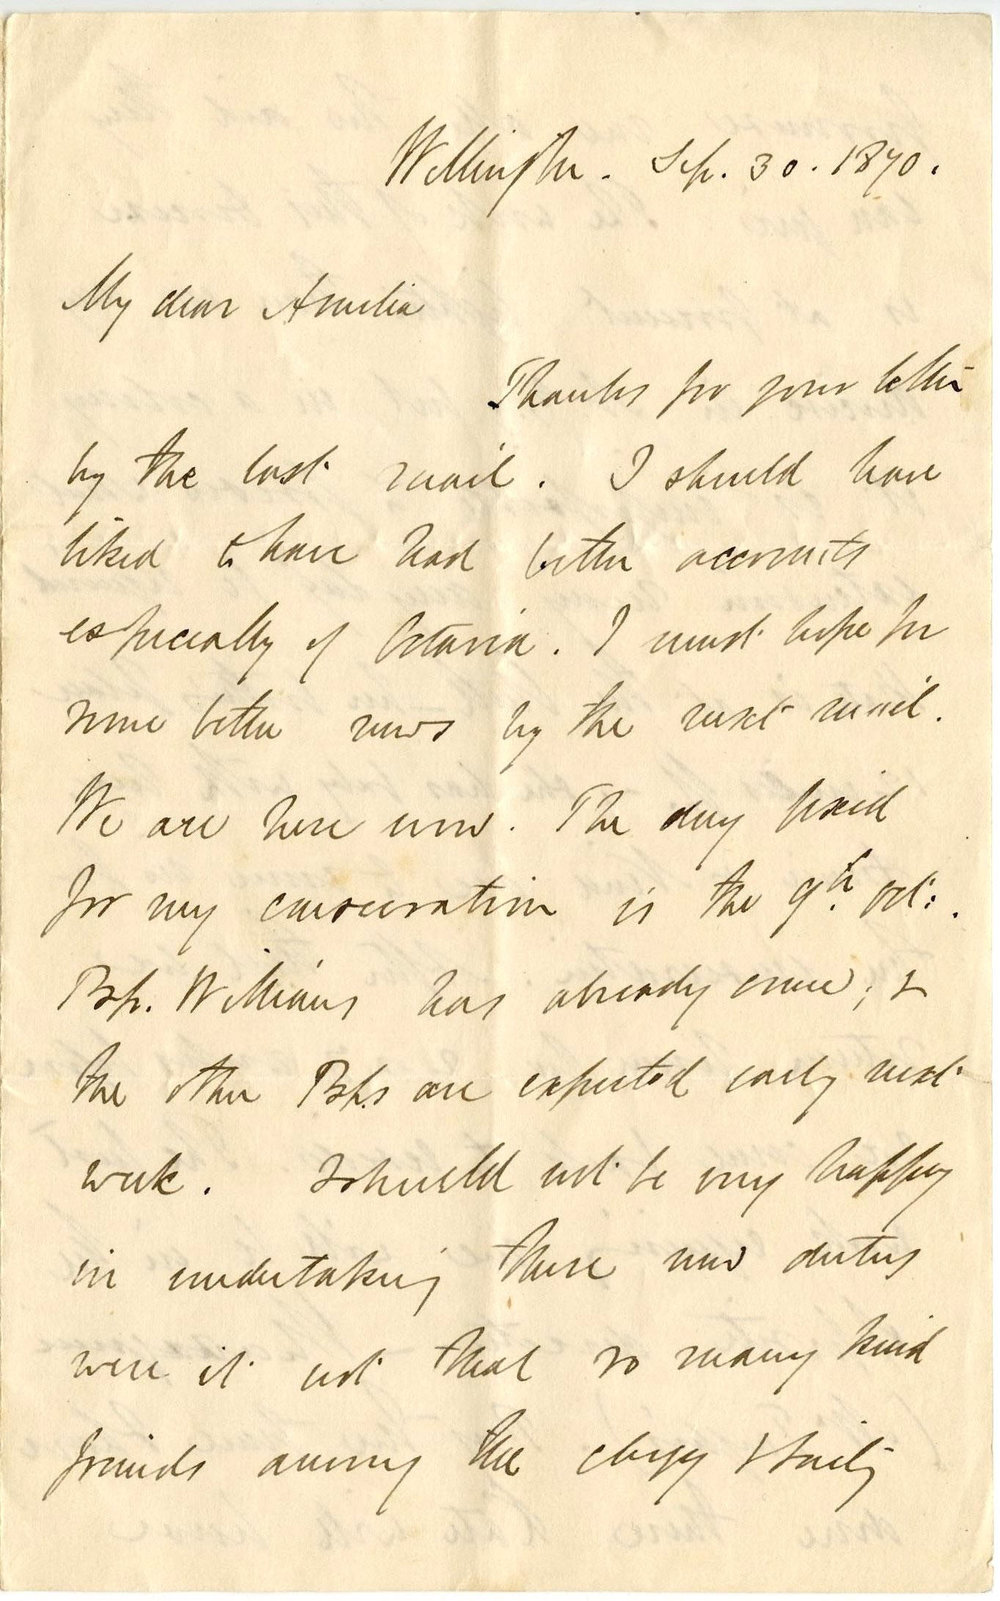 Wellington. Sep. 30. 1870.
My dear Amelia
Thanks for your letter
by the last mail. I should have
liked to have had better accounts
especially of Octavia. I must hope for
some better news by the next mail.
We are here now. The day fixed
for my consecration is the 9th. Oct:.
Bp. Williams has already come; &
the other Bps are expected early next
week. I should not be very happy
in undertaking these new duties
were it not that so many kind
friends among the clergy & laity